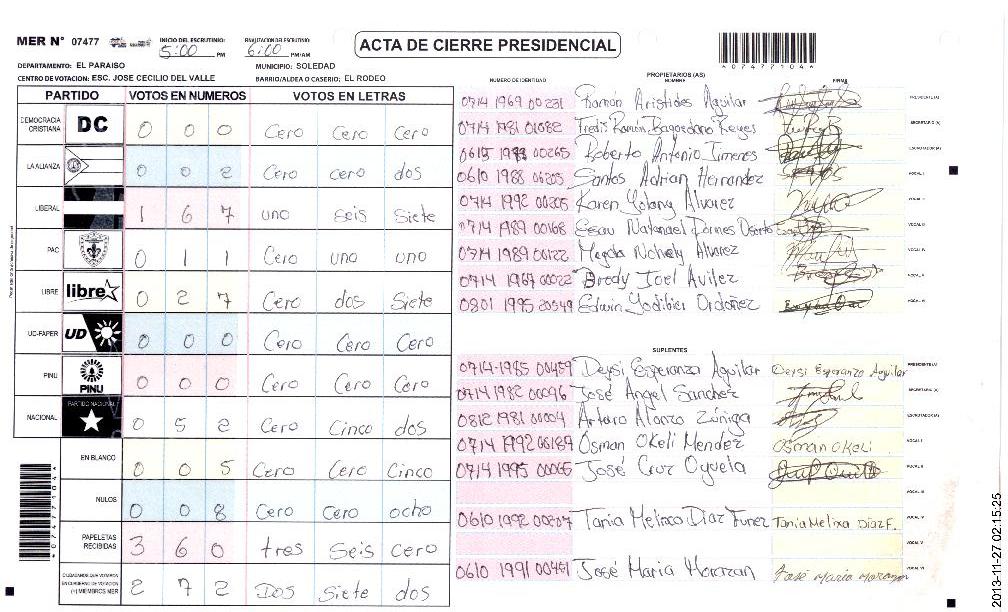 MER N° 07477
INICIO DEL ESCRUTINIO: 5:00 PM
FINALIZACION DEL ESCRUTINIO: 6:00 PM/AM
ACTA DE CIERRE PRESIDENCIAL
4 0 7 4 7 7 1 0 4 4
DEPARTAMENTO: EL PARAISO
MUNICIPIO: SOLEDAD
CENTRO DE VOTACION: ESC. JOSE CECILIO DEL VALLE
BARRIO/ALDEA O CASERIO: EL RODEO
PARTIDO VOTOS EN NUMEROS VOTOS EN LETRAS
DEMOCRACIA CRISTIANA DC 0 0 0 Cero Cero Cero
LA ALIANZA 0 0 2 Cero cero dos
LIBERAL 1 6 7 uno seis Siete
PAC 0 1 1 Cero uno uno
LIBRE libre 0 2 7 Cero dos Siete
UD-FAPER UD 0 0 0 Cero Cero Cero
PINU PINU 0 0 0 Cero Cero Cero
NACIONAL PARTIDO NACIONAL 0 5 2 Cero Cinco dos
EN BLANCO 0 0 5 Cero Cero Cinco
NULOS 0 0 8 Cero Cero ocho
PAPELETAS RECIBIDAS 3 6 0 tres Seis Cero
CIUDADANOS QUE VOTARON EN CUADERNO DE VOTACION (+) MIEMBROS MER 2 7 2 Dos Siete dos
NUMERO DE IDENTIDAD
PROPIETARIOS (AS)
NOMBRE
FIRMA
0714 1969 00231 Ramón Aristides Aguilar PRESIDENTE(A)
0714 1981 01082 Fredis Ramón Bagoedano Reyes SECRETARIO (A)
Roberto Antonio Jimenes ESCRUTADOR (A)
0610 1988 Santos Adrian Hernandez VOCAL I
0714 1992 00205 Karen Yolany Alvarez VOCAL II
0714 1989 00168 Esau Natanael VOCAL III
0714 1989 00122 Magda Nohely Alvarez VOCAL IV
0714 1967 00022 Brody Joel Avilez VOCAL V
0801 1995 20549 Edwin Ordoñez VOCAL VI
SUPLENTES
0714-1985 00459 Deysi Esperanza Aguilar Deysi Esperanza Aguilar PRESIDENTE (A)
0714 1982 00096 José Angel Sanchez SECRETARIO (A)
0812 1981 00004 Arturo Alonzo Zúniga ESCRUTADOR(A)
0714 1992 00189 Osman OKeli Mendez Osman OKeli VOCAL I
0714 1995 00065 José Cruz Oyuela VOCAL II
VOCAL III
0610 1992 Tania Diaz Funez Tania Melixa Diaz F. VOCAL IV
VOCAL V
0610 1991 00451 José Maria José Maria VOCAL VI
4 0 7 4 7 7 1 0 4 4
2013-11-27 02:15:25